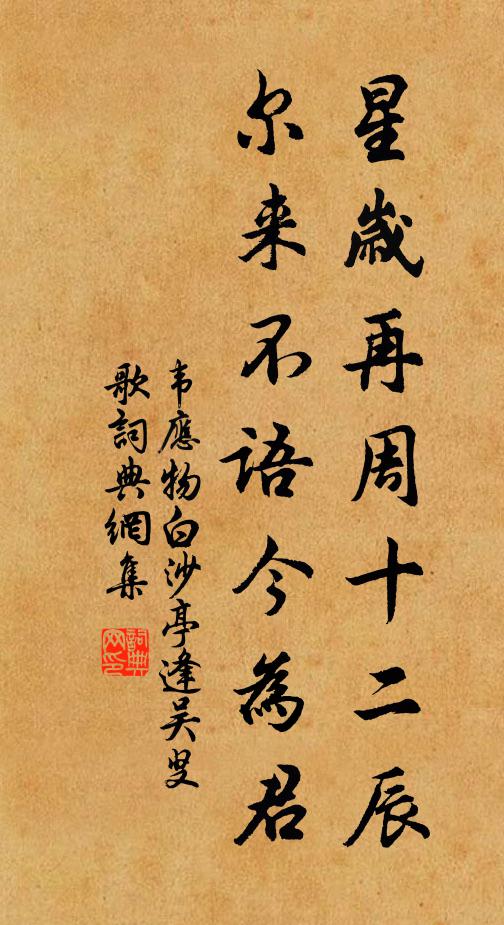 星歲再周十二辰
尔来不語今為君
韦應物白沙亭逢吴叟
歌詞典網集
詞典网印